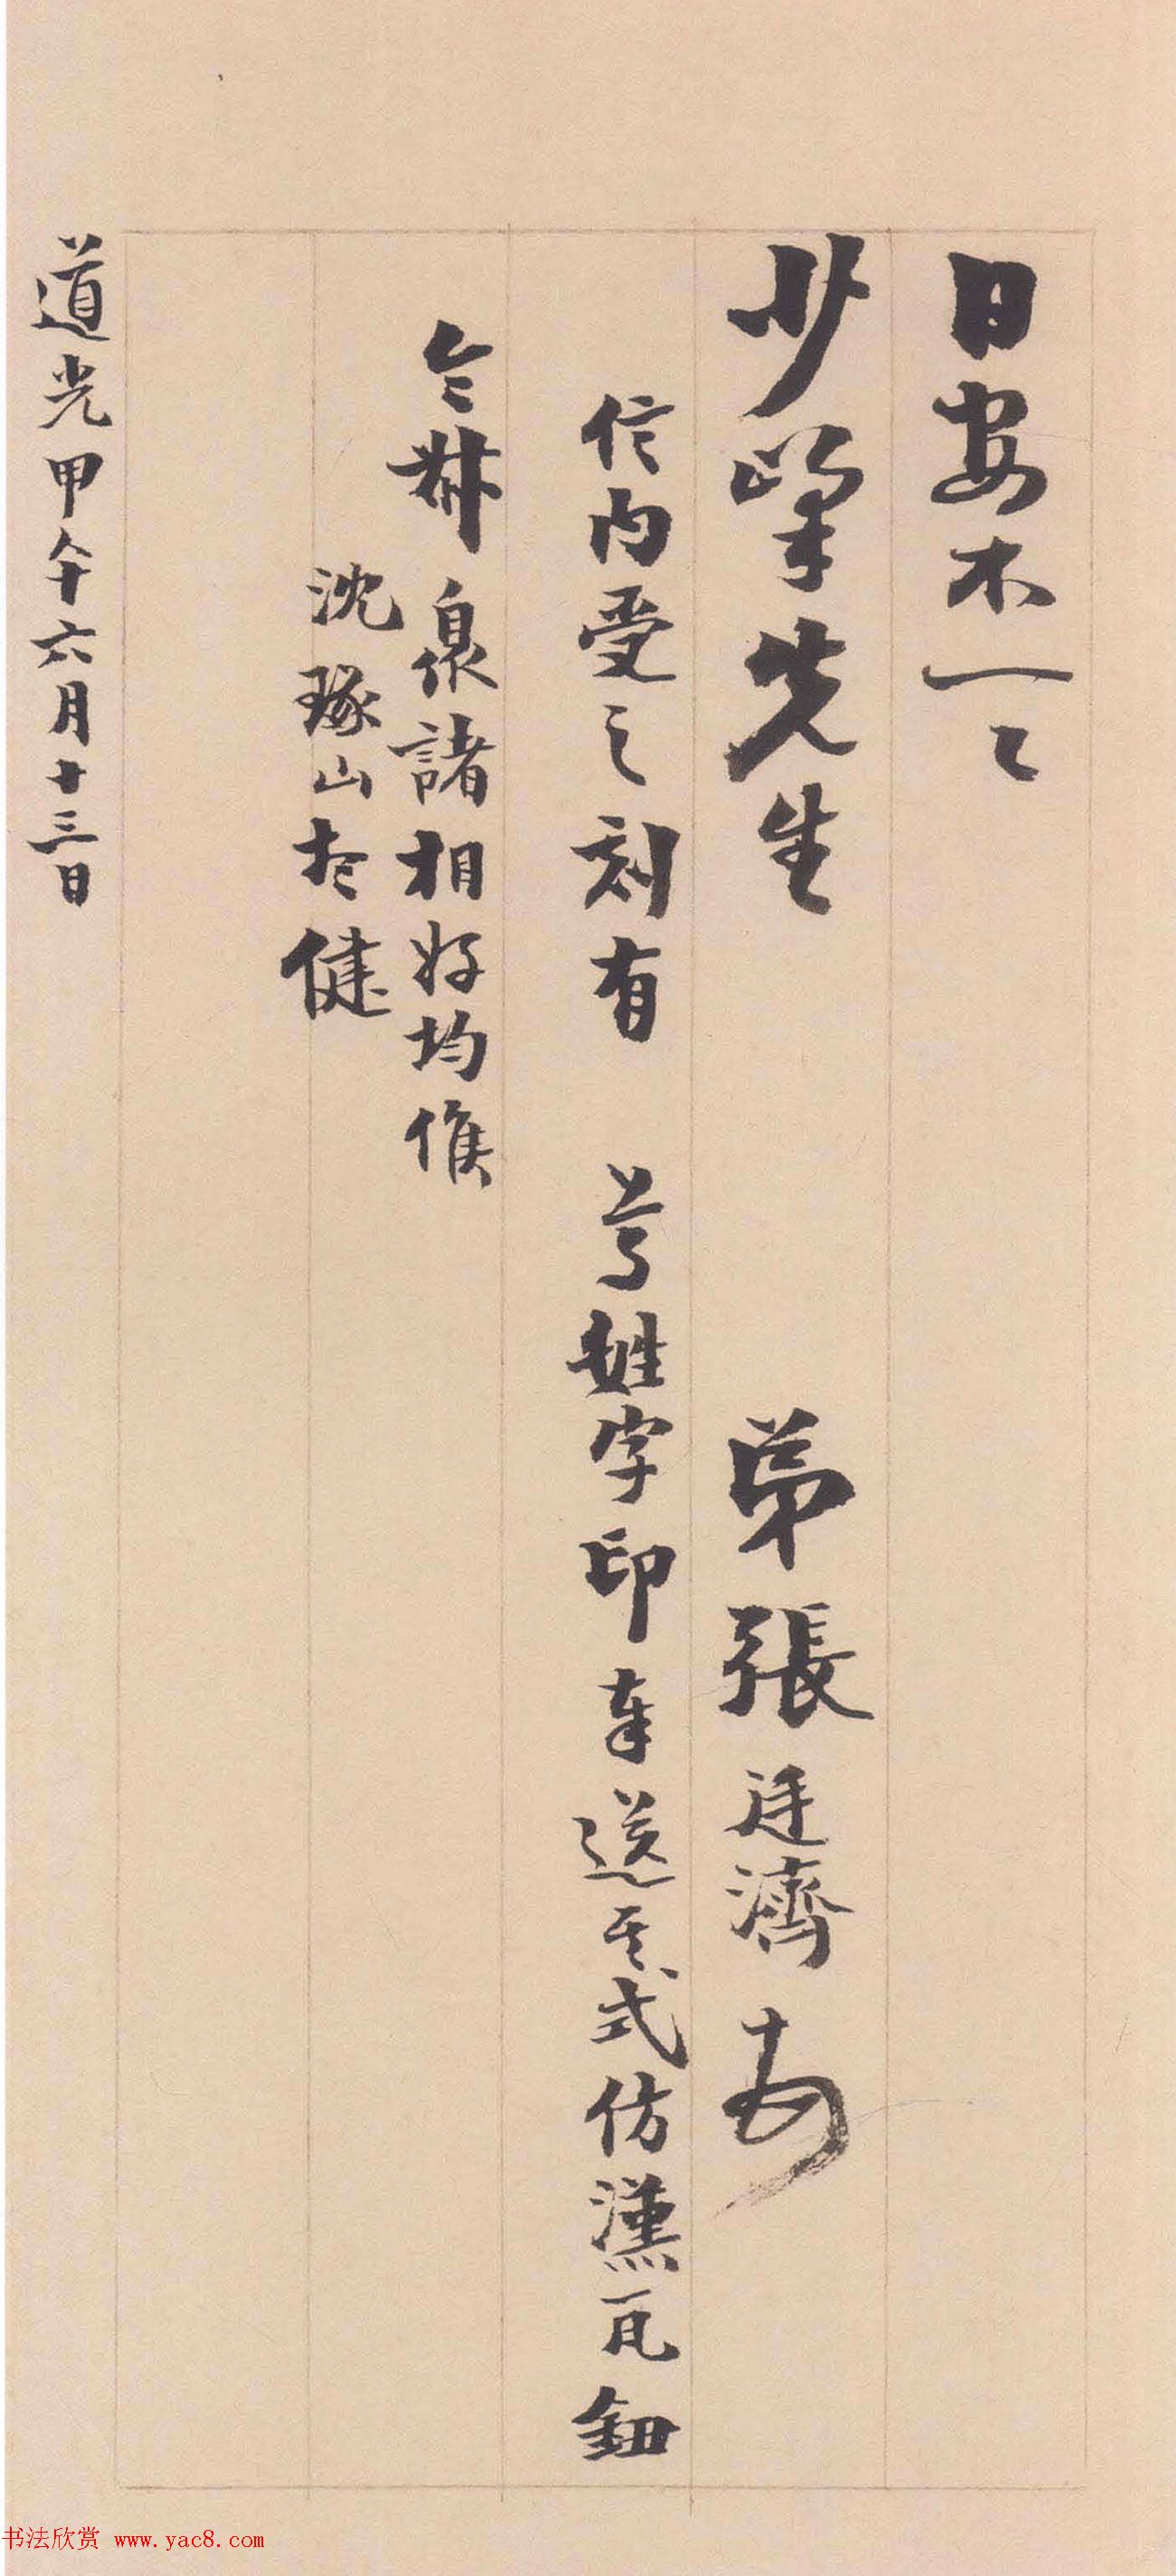 日安不一々
少峯先生 弟張廷濟
信內受之刻有 号姓字印奉送其式仿漢瓦鈕
令弟 泉諸相好均候
沈琢山於健
道光甲午六月十三日
书法欣赏 www.yac8.com